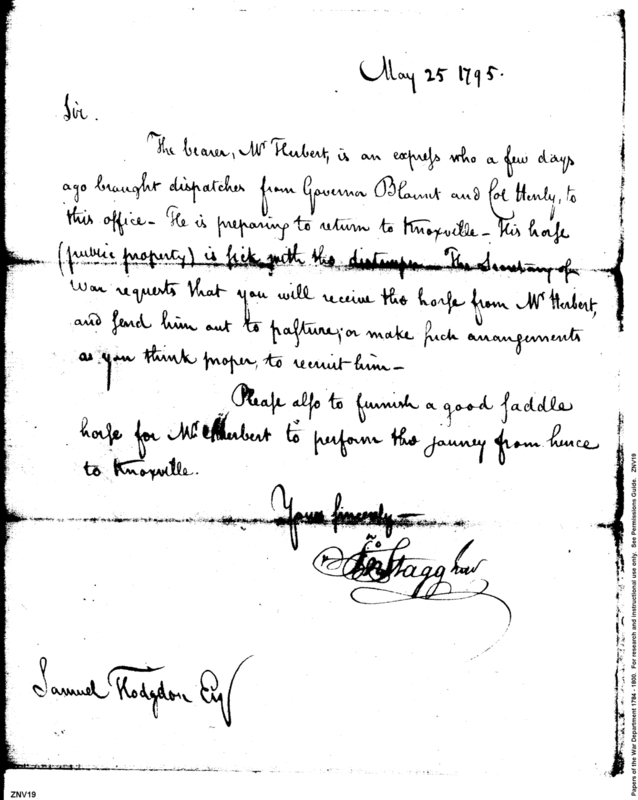 May 25 1795.
Sir.
The bearer, Mr Herbert, is an express who a few days
ago brought dispatches from Governor Blount and Col Henly, to
this office - He is preparing to return to Knoxville - His horse
(public property) is sick with the distemper The Secretary of
War requests that you will receive the horse from Mr Herbert,
and send him out to pasture; or make such arrangements
as you think proper, to recruit him -
Please also to furnish a good saddle
horse for Mr Herbert to perform the journey from hence
to Knoxville.
Yours sincerely -
Jno Stagg Junr
Samuel Hodgdon Esq
ZNV19
Papers of the War Department 1784 - 1800. For research and instructional use only. See Permissions Guide. ZNV19